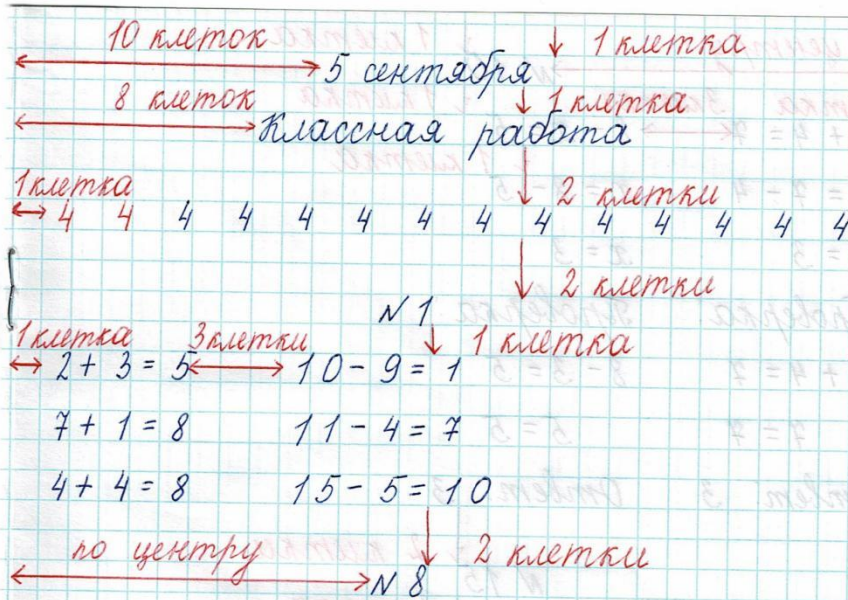 10 клеток ↓ 1 клетка
5 сентября
8 клеток ↓ 1 клетка
Классная работа
1 клетка ↓ 2 клетки
4 4 4 4 4 4 4 4 4 4 4 4 4 4
↓ 2 клетки
N 1
1 клетка 3 клетки ↓ 1 клетка
2 + 3 = 5 10 - 9 = 1
7 + 1 = 8 11 - 4 = 7
4 + 4 = 8 15 - 5 = 10
по центру ↓ 2 клетки
N 8